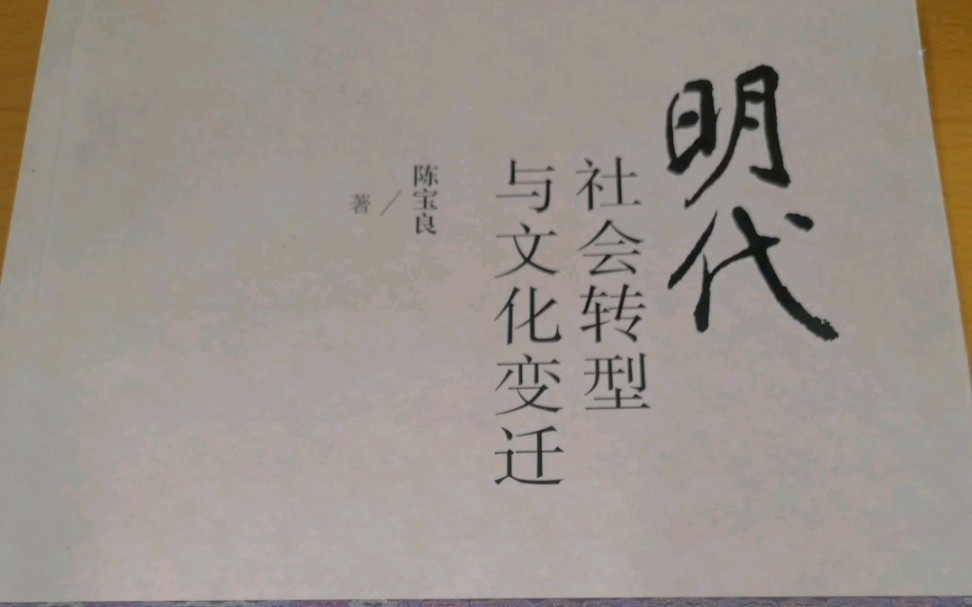 明代
社会转型
与文化变迁
陈宝良／著